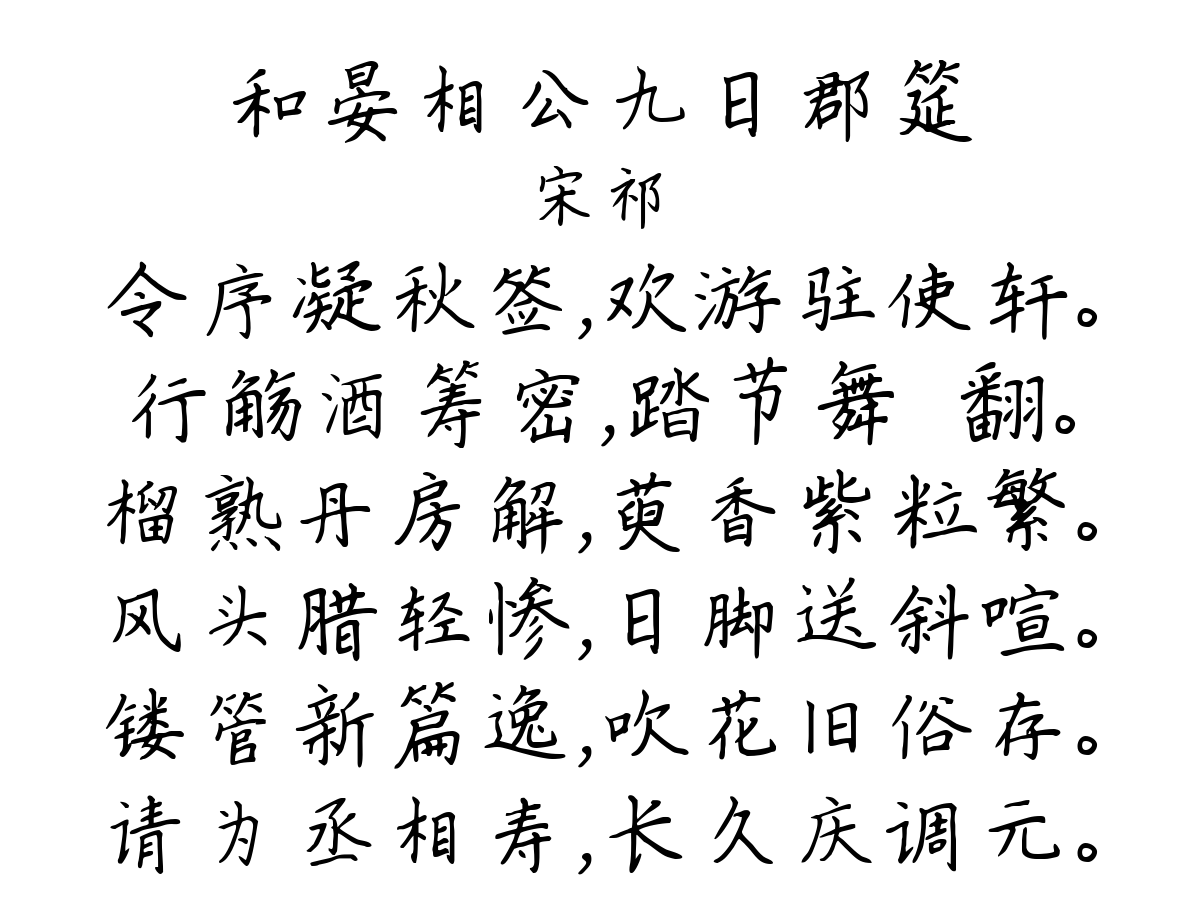 和晏相公九日郡筵
宋祁
令序凝秋签,欢游驻使轩。
行觞酒筹密,踏节舞 翻。
榴熟丹房解,萸香紫粒繁。
风头腊轻惨,日脚送斜喧。
镂管新篇逸,吹花旧俗存。
请为丞相寿,长久庆调元。